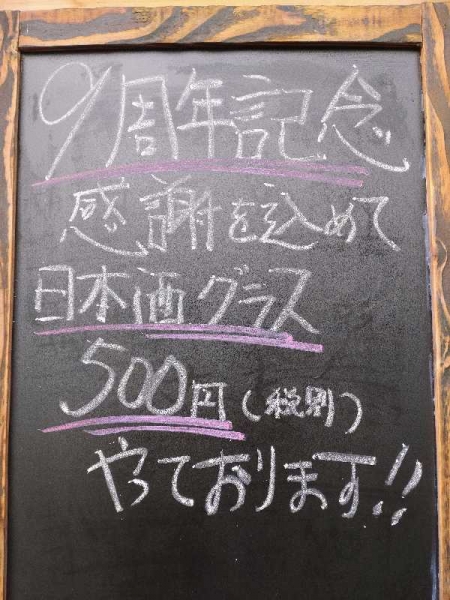 9周年記念
感謝を込めて
日本酒グラス
500円(税別)
やっております!!